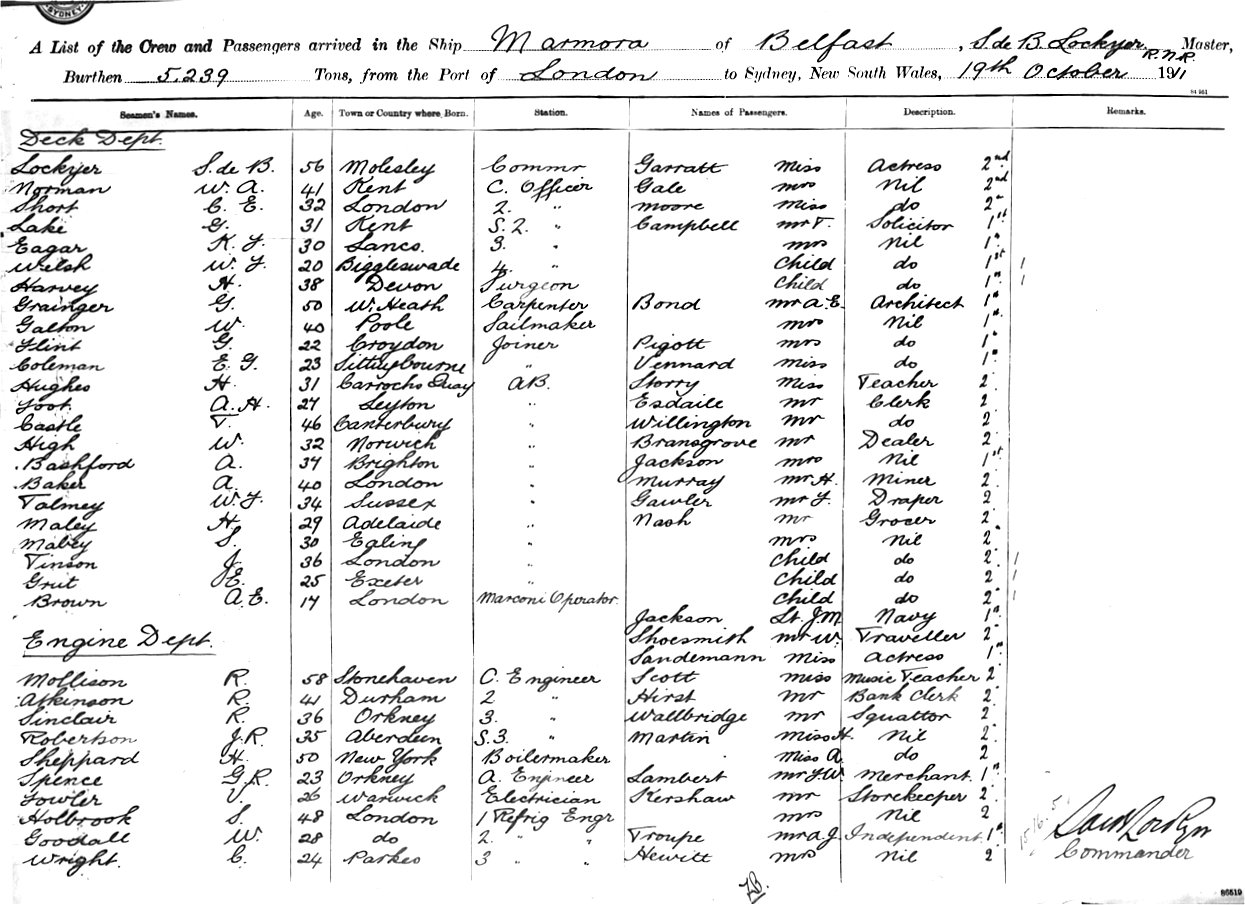 SYDNEY
A List of the Crew and Passengers arrived in the Ship Marmora of Belfast, S. de B. Lockyer R.N.R. Master,
Burthen 5,239 Tons, from the Port of London to Sydney, New South Wales, 19th October 1911
84 951
Seamen's Names. Age. Town or Country where Born. Station. Names of Passengers. Description. Remarks.
Deck Dept.
Lockyer S. de B. 56 Molesley Commr Garratt Miss Actress 2nd
Norman W. A. 41 Kent C. Officer Gale Mrs Nil 2nd
Short C. E. 32 London 2. " Moore Miss do 2"
Lake G. 31 Kent S. 2. " Campbell Mr T. Solicitor 1st
Eagar K. F. 30 Lancs. 3. " Mrs Nil 1"
Welsh W. F. 20 Biggleswade 4. " Child do 1st 1
Harvey H. 38 Devon Surgeon Child do 1" 1
Grainger G. 50 W. Heath Carpenter Bond Mr A. E. Architect 1"
Galton W. 40 Poole Sailmaker Mrs Nil 1"
Flint G. 22 Croydon Joiner Pigott Mrs do 1"
Coleman E. G. 23 Sittuybourne " Vennard Miss do 1"
Hughes H. 31 Carrochs Quay A.B. Storry Miss Teacher 2
Foot A. H. 27 Leyton " Esdaile Mr Clerk 2
Castle T. 46 Canterbury " Willington Mr do 2
High W. 32 Norwich " Bransgrove Mr Dealer 2
Bashford A. 37 Brighton " Jackson Mrs Nil 1st
Baker A. 40 London " Murray Mr H. Miner 2
Talmey W. F. 34 Sussex " Gawler Mr F. Draper 2
Maley H. 29 Adelaide " Nash Mr Grocer 2
Mabey S. 30 Ealing " Mrs Nil 2
Tinson J. 36 London " Child do 2 1
Grut E. 25 Exeter " Child do 2 1
Brown A. E. 17 London Marconi Operator. Child do 2 1
Jackson Lt. J. M. Navy 1"
Engine Dept. Shoesmith Mr W. Traveller 2
Sandemann Miss Actress 1"
Mollison R. 58 Stonehaven C. Engineer Scott Miss Music Teacher 2
Atkinson R. 41 Durham 2 " Hirst Mr Bank Clerk 2
Sinclair R. 36 Orkney 3. " Wallbridge Mr Squattor 2
Robertson J. R. 35 Aberdeen S. 3. " Martin Miss H. Nil 2
Sheppard H. 50 New York Boilermaker Miss A. do 2
Spence G. R. 23 Orkney A. Engineer Lambert Mr F. W. Merchant. 1"
Fowler V. 26 Warwick Electrician Kershaw Mr Storekeeper 2
Holbrook S. 48 London 1 Refrig Engr Mrs Nil 2
Goodall W. 28 do 2. " " Troupe Mr A. J. Independent 1"
Wright. C. 24 Parkes 3 " " Hewitt Mrs Nil 2
Commander
86519